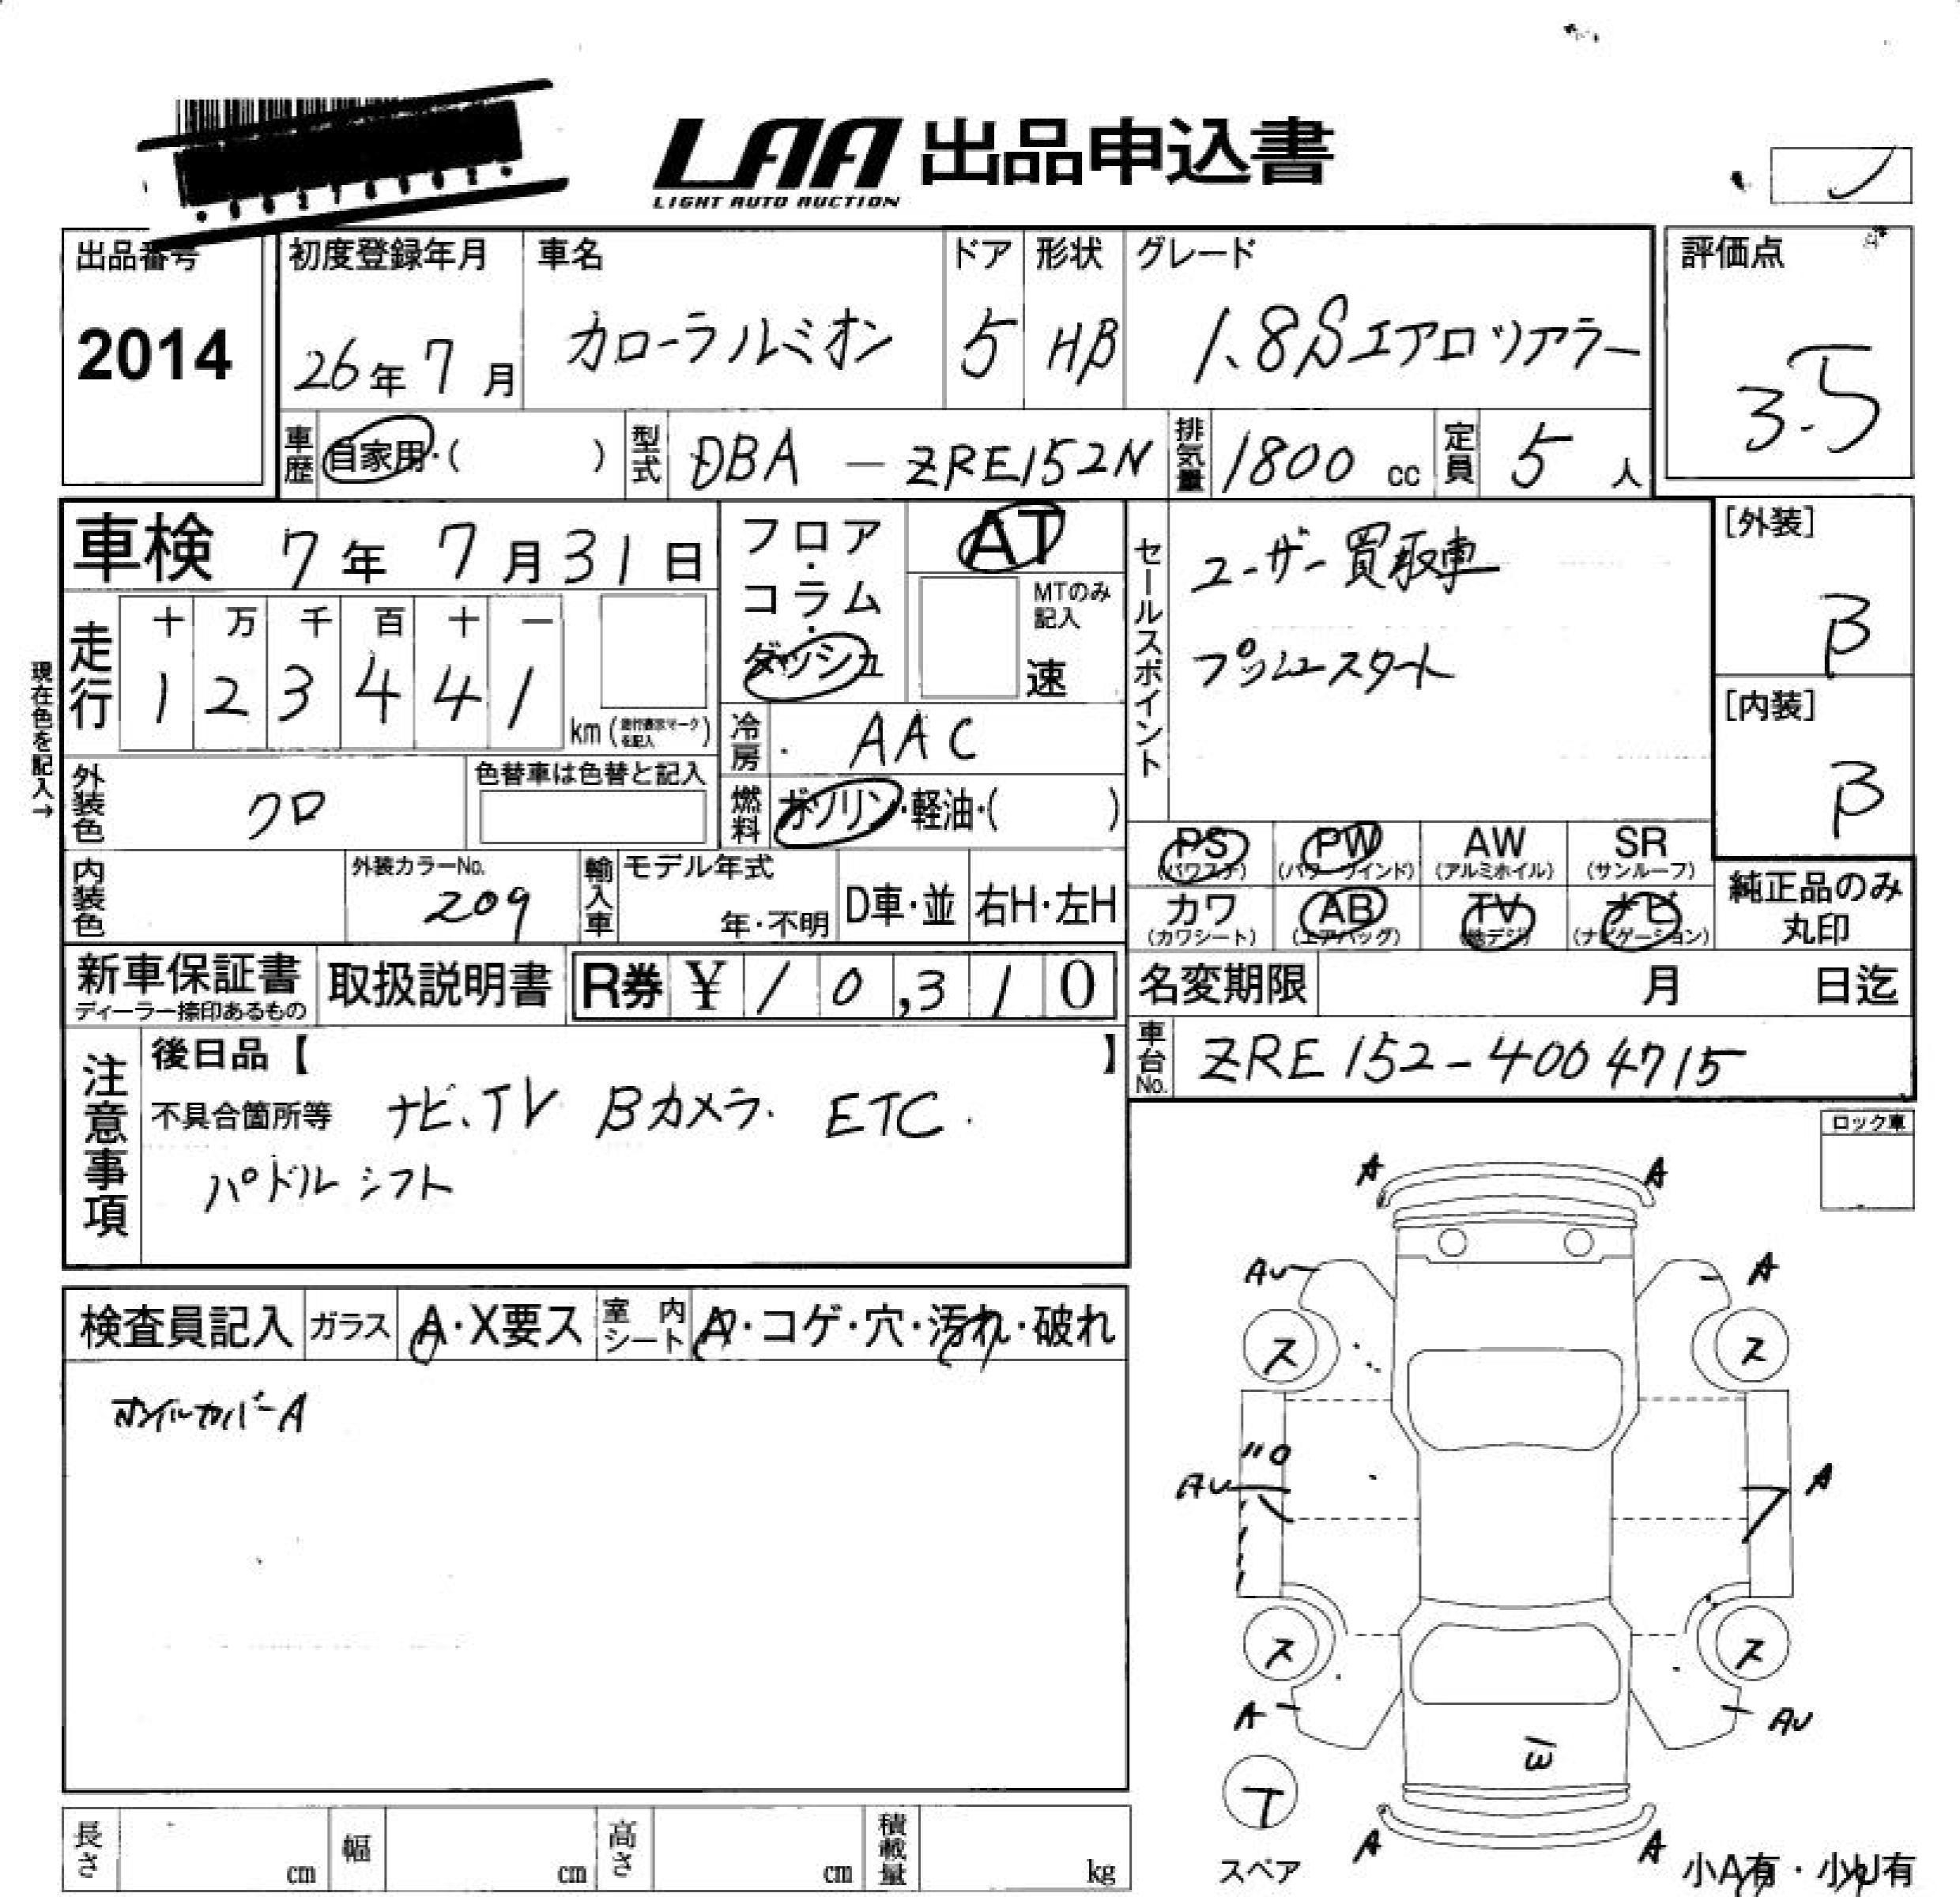 LAA 出品申込書
LIGHT AUTO AUCTION
出品番号
2014
初度登録年月
26年 7月
車名
カローラルミオン
ドア
5
形状
HB
グレード
1.8S エアロツアラー
評価点
3.5
車歴 自家用・( )
型式 DBA - ZRE152N
排気量 1800 cc
定員 5 人
車検 7年 7月 31日
フロア・コラム・ダッシュ
AT
MTのみ記入
速
セールスポイント
ユーザー買取車
プッシュスタート
[外装]
B
[内装]
B
現在色を記入→
走行
十 万 千 百 十 一
1 2 3 4 4 1
km (走行表示マークを記入)
冷房 AAC
燃料 ガソリン・軽油・( )
外装色 クロ
色替車は色替と記入
内装色
外装カラーNo.
209
輸入車
モデル年式
年・不明
D車・並
右H・左H
PS (パワステ)
PW (パワーウインド)
AW (アルミホイル)
SR (サンルーフ)
カワ (カワシート)
AB (エアバッグ)
TV (地デジ)
ナビ (ナビゲーション)
純正品のみ丸印
新車保証書
ディーラー捺印あるもの
取扱説明書
R券 ¥10,310
名変期限 月 日迄
車台No. ZRE152-4004715
注意事項
後日品【 】
不具合箇所等 ナビ、TV Bカメラ. ETC.
パドルシフト
ロック車
検査員記入
ガラス A・X要ス
室内シート A・コゲ・穴・汚れ・破れ
ホイルカバーA
A A
AU A
ス ス
AU A
ス ス
A AU
W
T
スペア
A A
小A有・小U有
長さ cm
幅 cm
高さ cm
積載量 kg